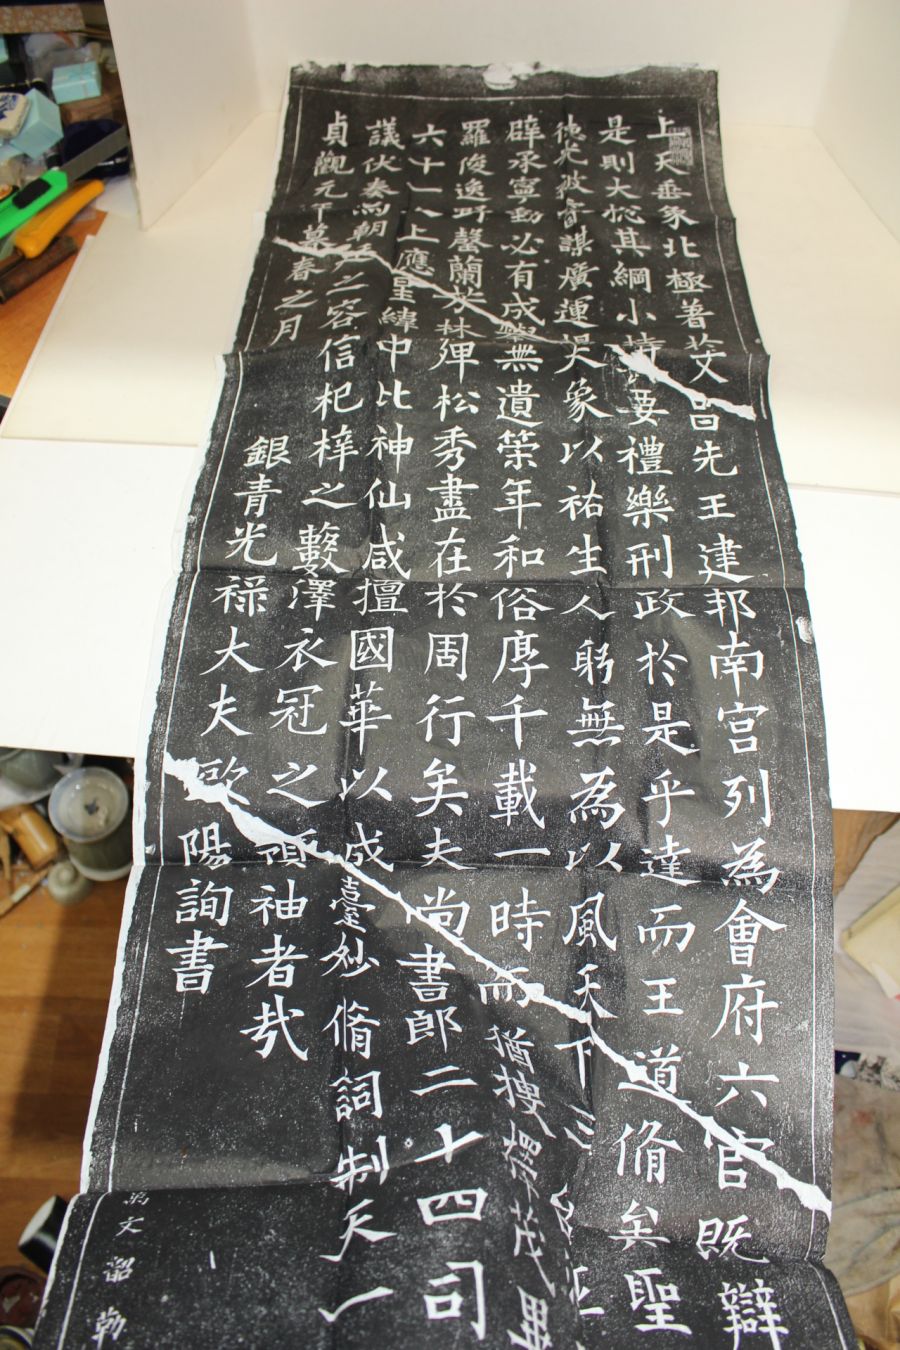 上天垂象北極著文昌先王建邦南宮列為會府六官既辯
是則大揔其綱小持其要禮樂刑政於是乎達而王道脩矣聖
德光被睿謀廣運象以祐生人躬無為以風天下
辟承寧動必有成舉無遺策年和俗厚千載一時而猶搜擇茂異
羅俊逸野罄蘭芳林殫松秀盡在於周行矣夫尚書郎二十四司
六十一人上應星緯中比神仙咸擅國華以成臺妙脩詞制天一
議伏奏為朝廷之容信杞梓之藪澤衣冠之領袖者哉
貞觀元年暮春之月
銀青光祿大夫歐陽詢書
文韶勒